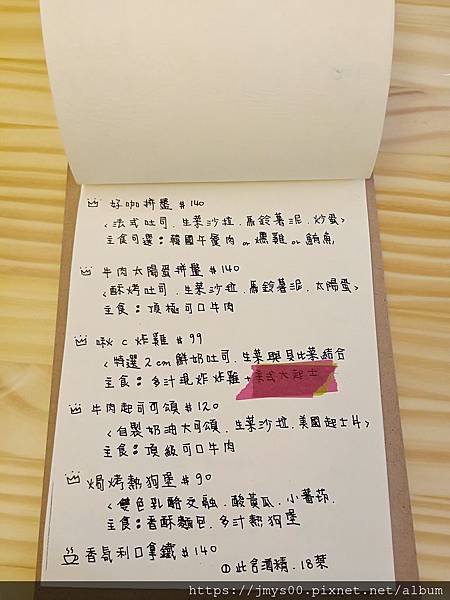 好咖拼盤 #140
<法式吐司．生菜沙拉．馬鈴薯泥．炒蛋>
主食可選：韓國午餐肉 or 燻雞 or 鮪魚
牛肉太陽蛋拼盤 #140
<酥烤吐司．生菜沙拉．馬鈴薯泥．太陽蛋>
主食：頂極可口牛肉
啾 c 炸雞 #99
<特選2cm鮮奶吐司．生菜與貝比菜結合
主食：多汁現炸炸雞+美式大起士
牛肉起司可頌 #120
<自製奶油大可頌．生菜沙拉．美國起士片>
主食：頂級可口牛肉
焗烤熱狗堡 #90
<雙色乳酪交融．酸黃瓜．小蕃茄．
主食：香酥麵包．多汁熱狗堡
香氛利口拿鐵 #140
①此含酒精．18禁
https://jmys00.pixnet.net/album